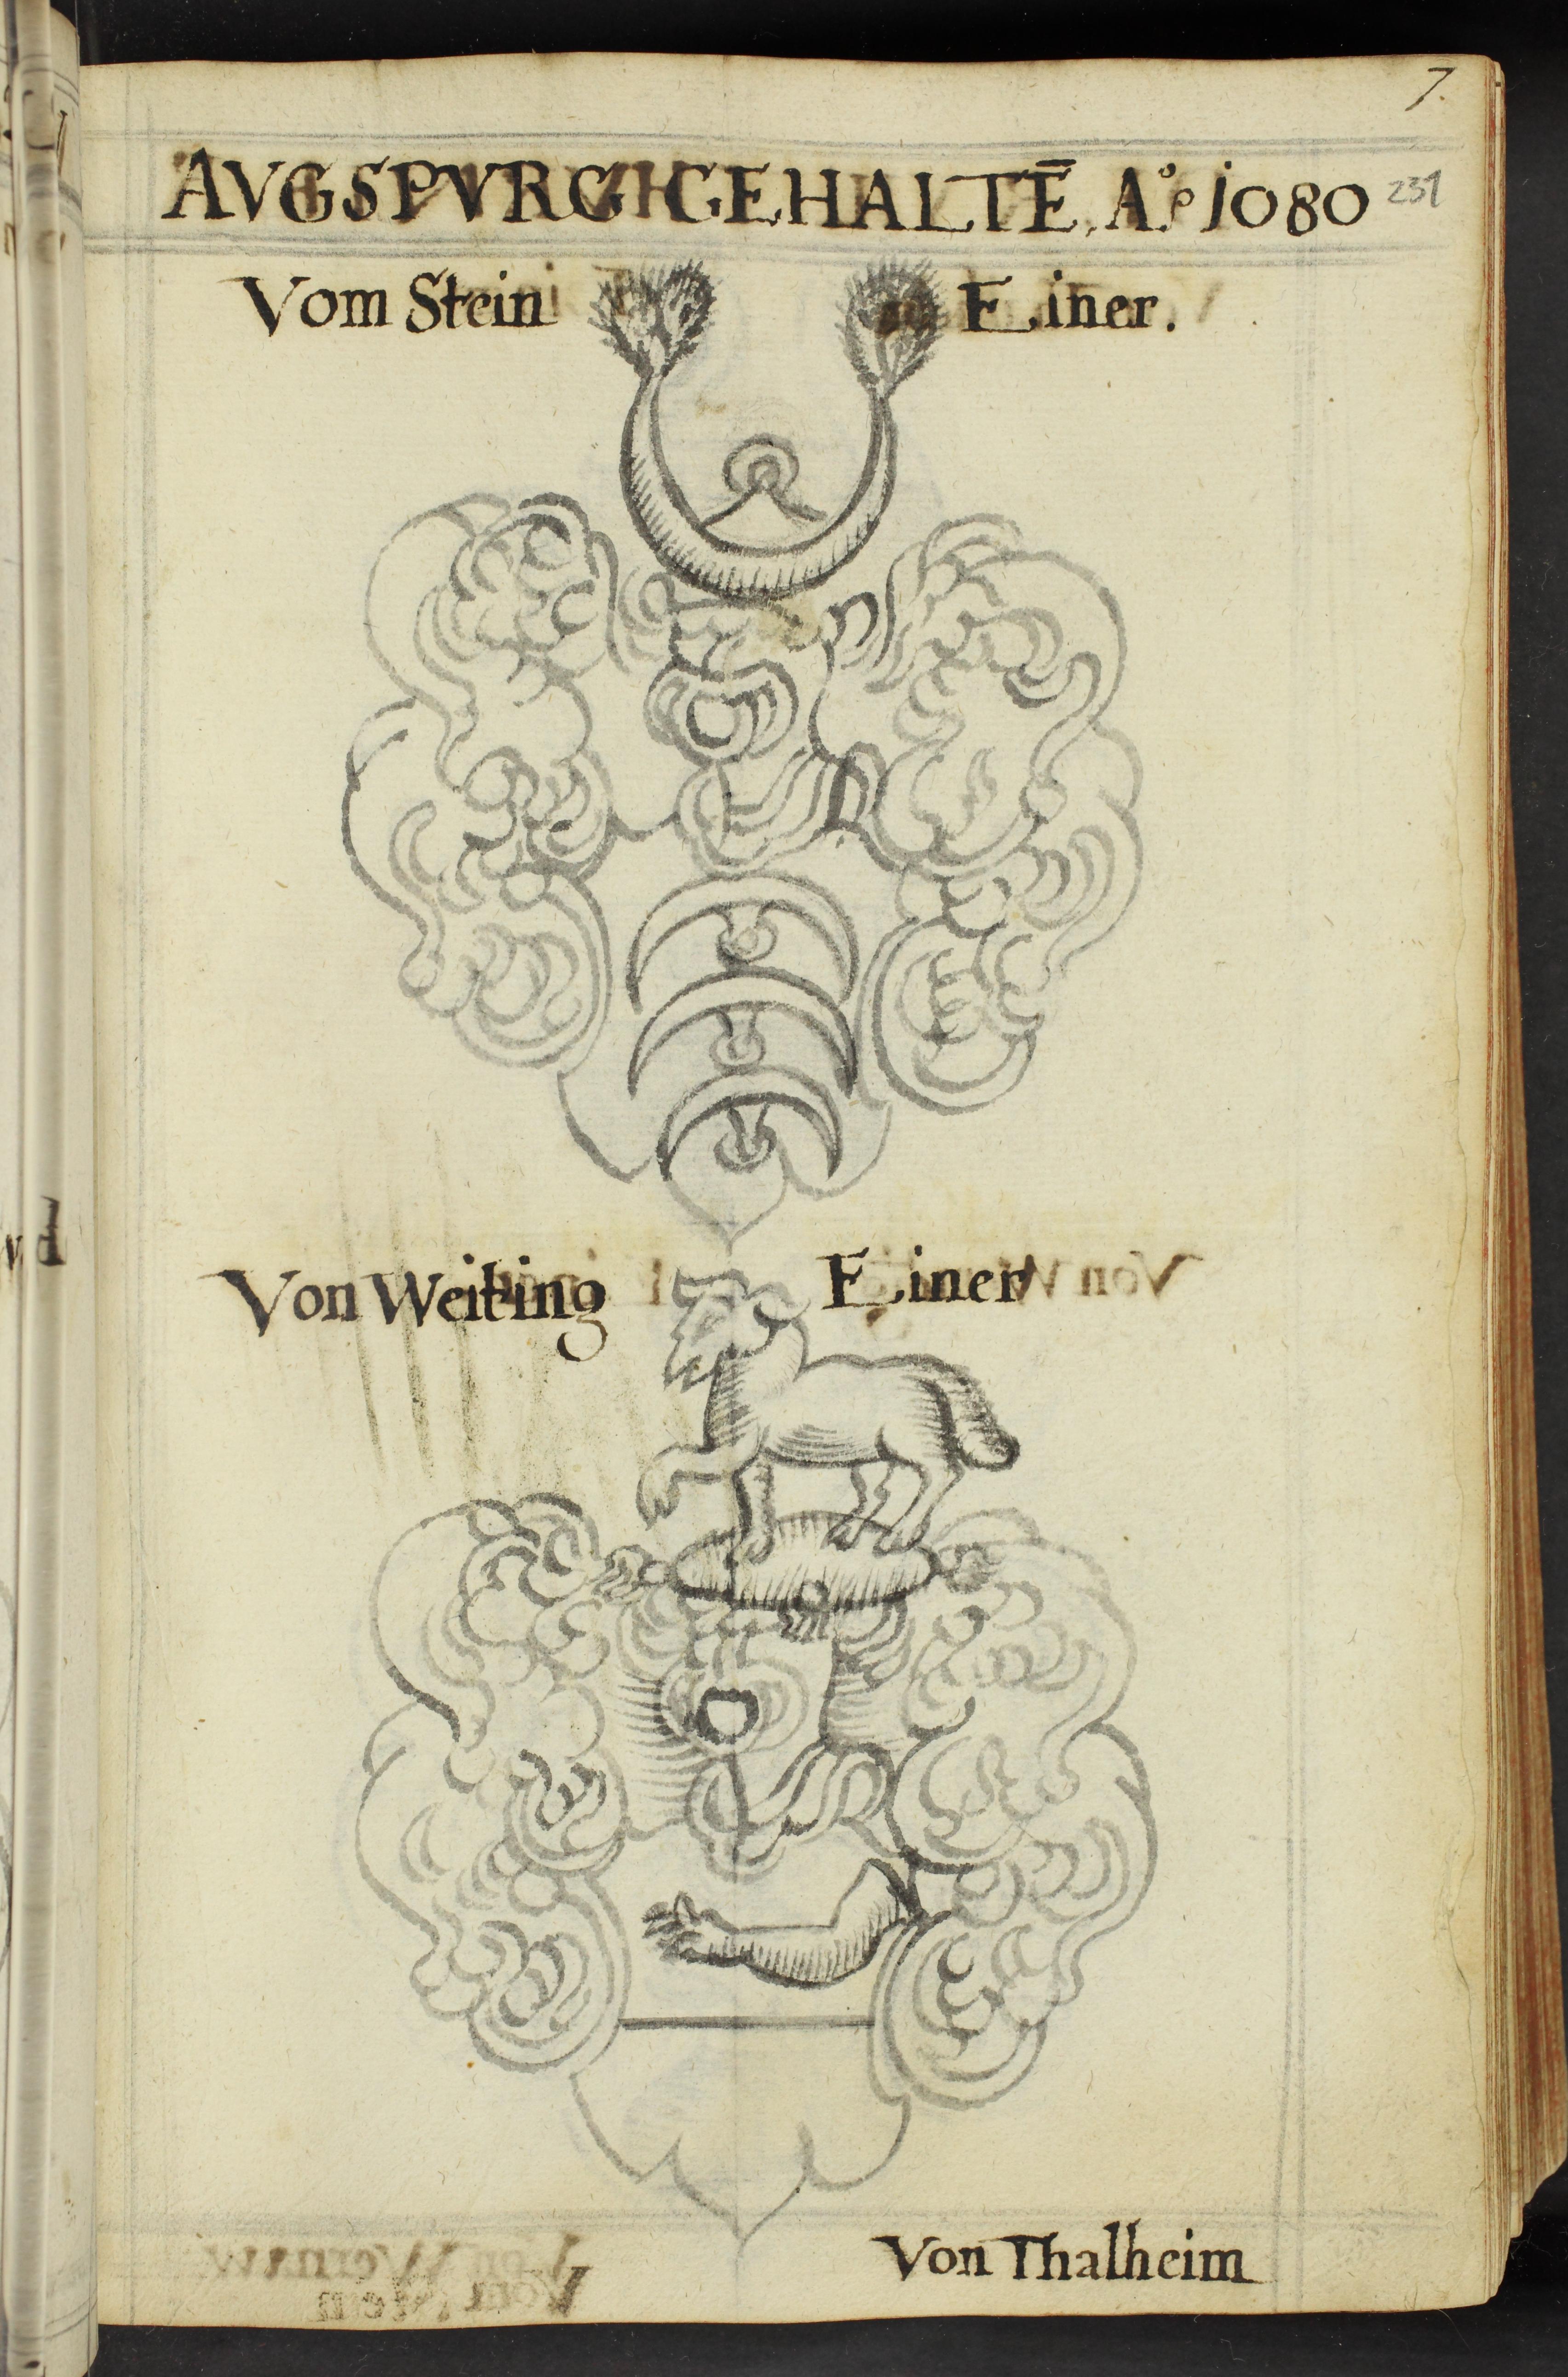 7.
AVGSPVRG GEHALTĒ, A.º 1080 231
Vom Stein Einer.
Von Weiting Einer
Von Thalheim